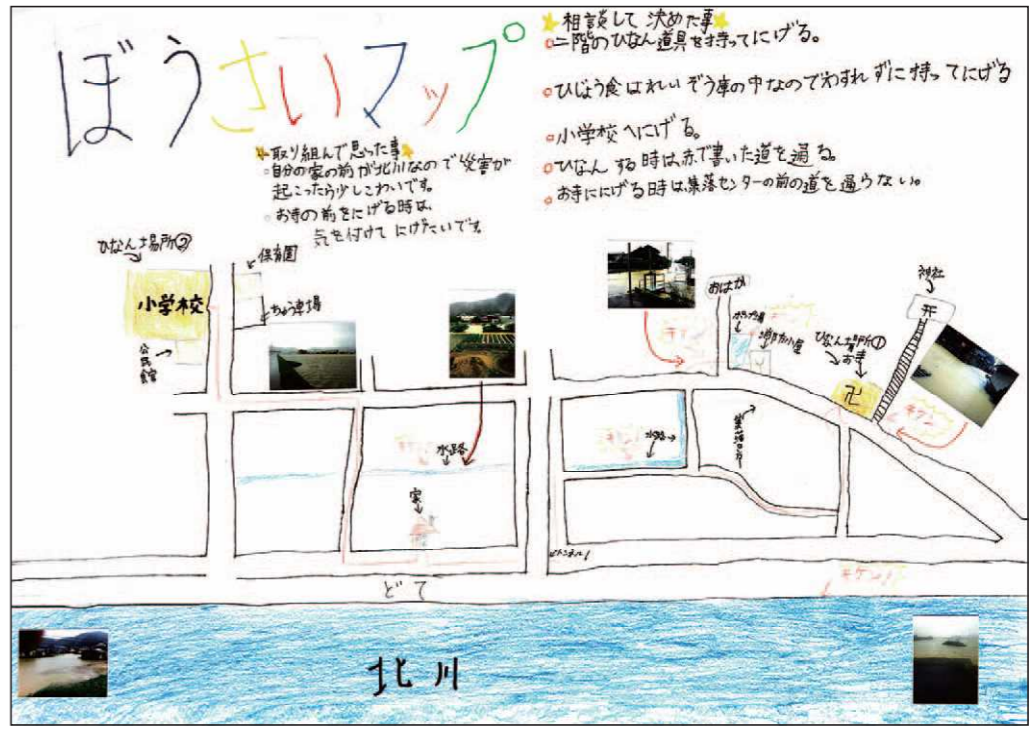 ぼうさいマップ
★相談して決めた事★
○二階のひなん道具を持ってにげる。
○ひじょう食はれいぞう庫の中なのでわすれずに持ってにげる
○小学校へにげる。
○ひなんする時は赤で書いた道を通る。
○お寺ににげる時は集落センターの前の道を通らない。
★取り組んで思った事★
○自分の家の前が北川なので災害が
起こったら少しこわいです。
○お寺の前をにげる時は、
気を付けてにげたいです
ひなん場所②
小学校
公民館
保育園
ちゅう車場
おはか
神社
ひなん場所①
お寺
卍
キケン
水路
水路
家
トンネル!
どて
キケン!
北川